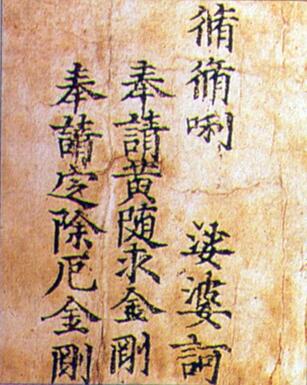 脩脩唎　娑婆訶
奉請黄随求金剛
奉請定除厄金剛